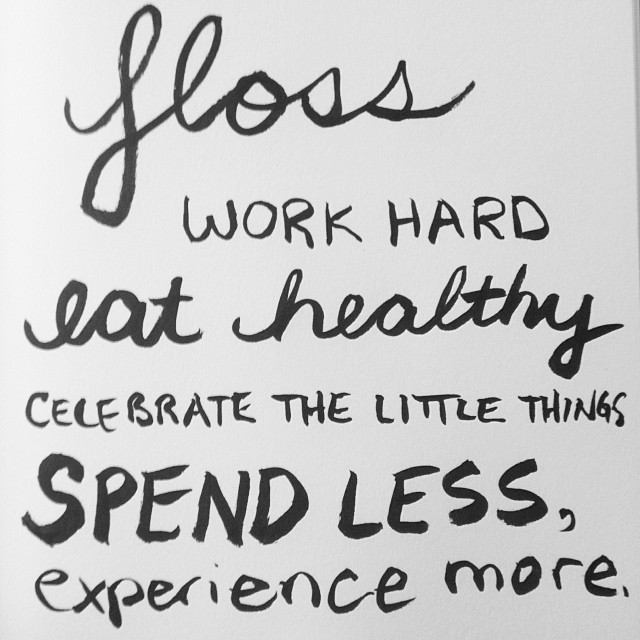 floss
WORK HARD
eat healthy
CELEBRATE THE LITTLE THINGS
SPEND LESS,
experience more.